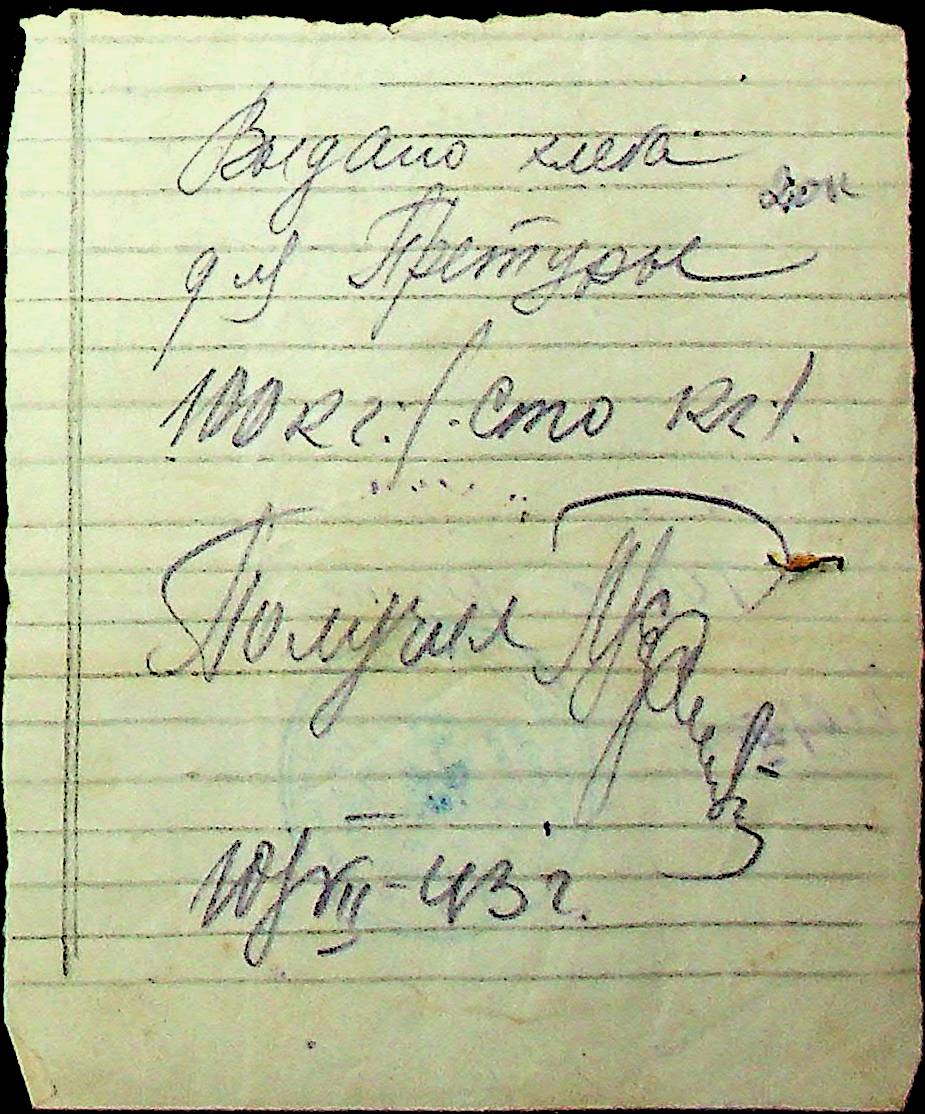 Выдано хлеба
для Претуры
100 кг. (сто кг).
Получил
10/XII-43 г.